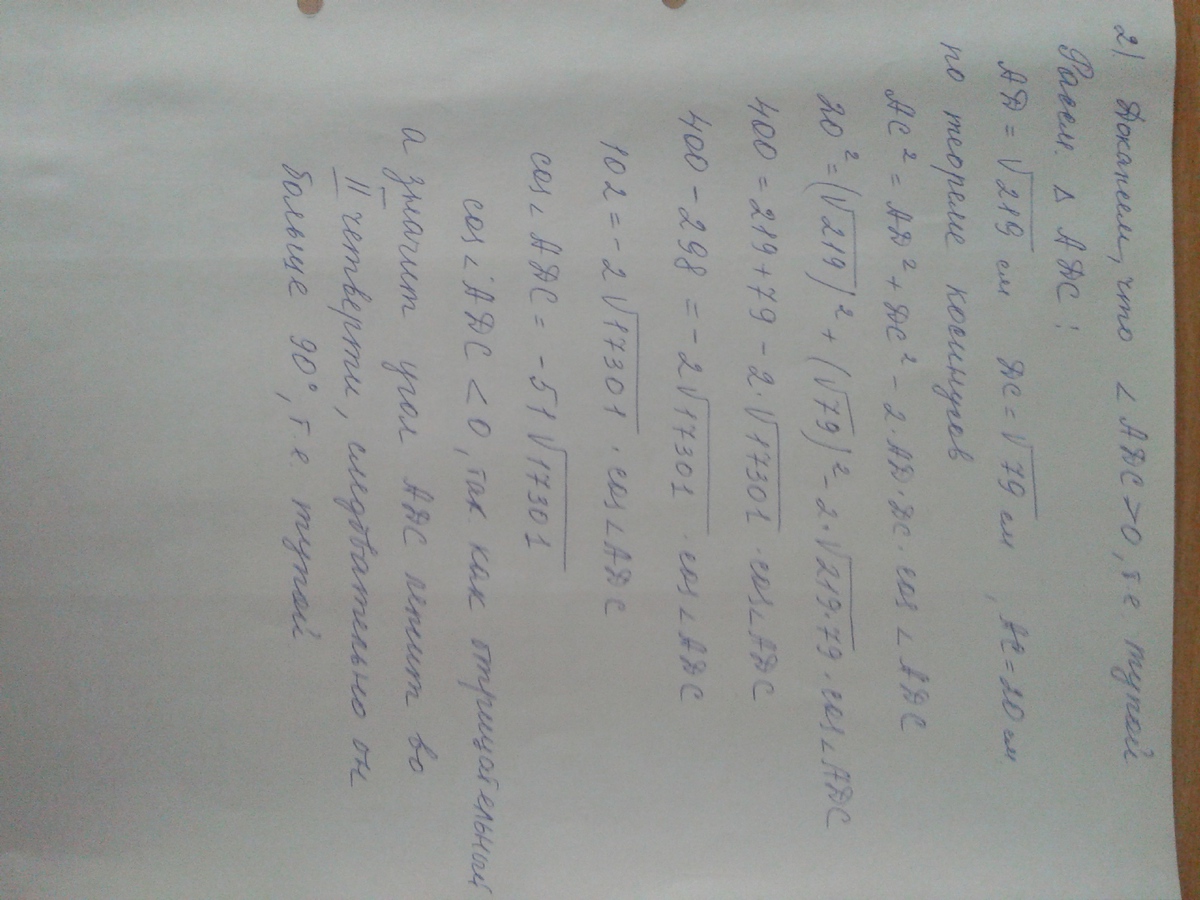 2) Докажем, что ∠ АДС>0, т.е. тупой
Рассм. Δ АДС:
АД = √219 см ДС = √79 см, АС = 20 см
по теореме косинусов
АС² = АД² + ДС² - 2·АД·ДС·cos ∠ АДС
20² = (√219)² + (√79)² - 2·√219·79 · cos∠АДС
400 = 219 + 79 - 2·√17301 · cos∠АДС
400 - 298 = - 2√17301 · cos∠АДС
102 = - 2√17301 · cos∠АДС
cos∠АДС = - 51√17301
cos∠АДС < 0, так как отрицательный
а значит угол АДС лежит во
II четверти, следовательно он
больше 90°, т.е. тупой